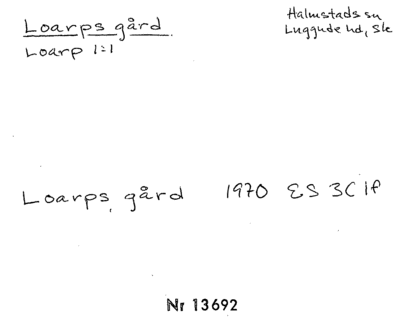 Loarps gård
Loarp 1:1
Halmstads sn
Luggude hd, Sk
Loarps gård 1970 ES 3C 1f
Nr 13692